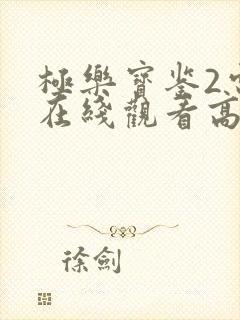 極樂寶鉴2
在綫觀看高
徐劍